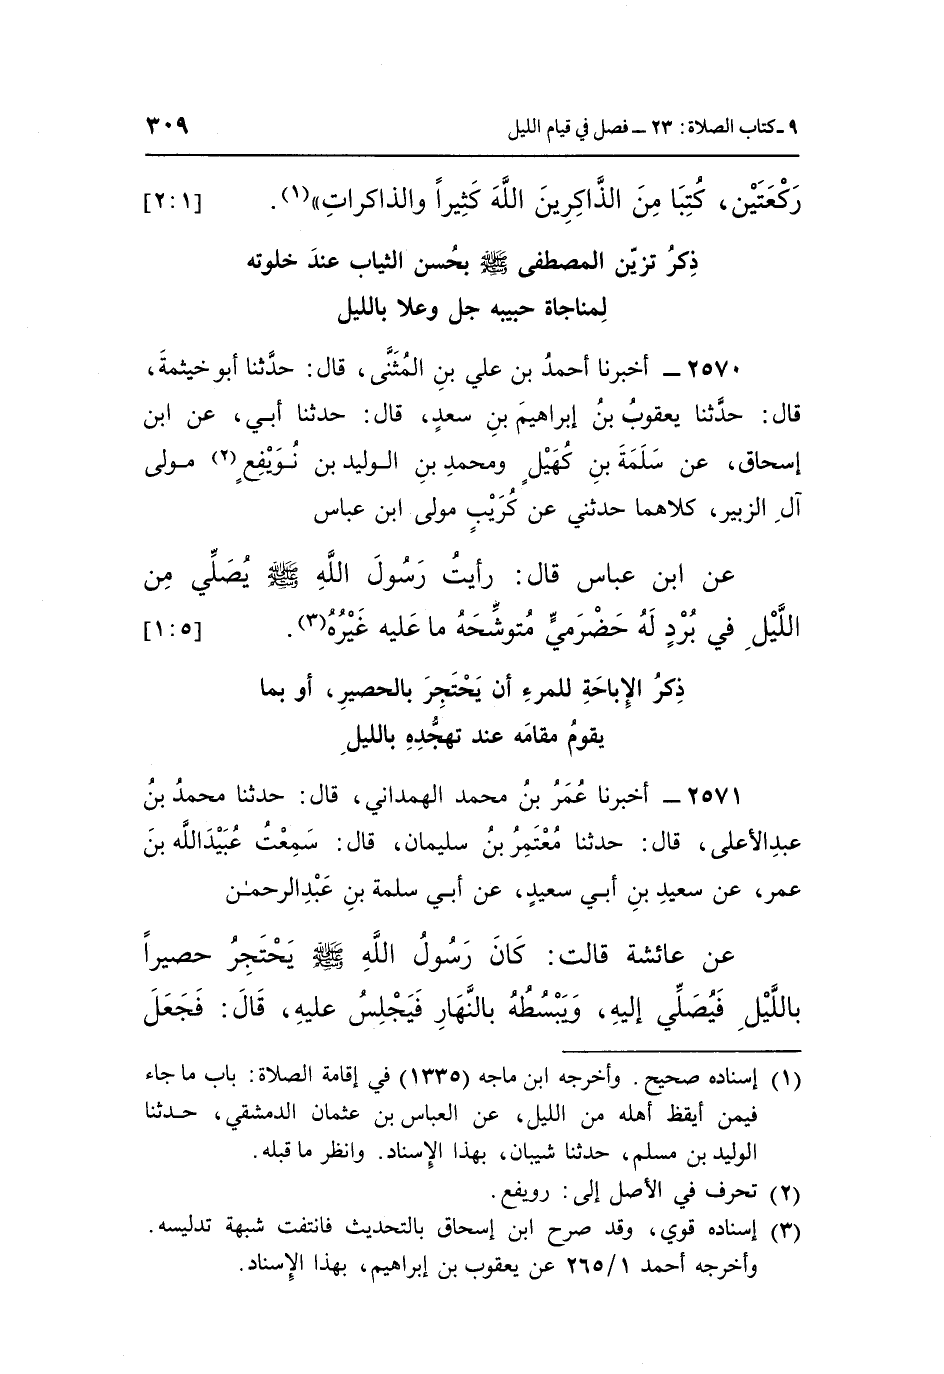 ٩ـ كتاب الصلاة: ٢٣ ـ فصل في قيام الليل ٣٠٩
رَكْعَتَيْن، كُتِبَا مِنَ الذَّاكِرِينَ اللَّهَ كَثِيراً والذاكراتِ»(١). [٢:١]
ذِكرُ تزيّن المصطفى ﷺ بحُسن الثياب عندَ خلوته
لِمناجاة حبيبه جل وعلا بالليل
٢٥٧٠ ـ أخبرنا أحمدُ بن علي بنِ المُثَنَّى، قال: حدَّثنا أبو خيثمةَ،
قال: حدَّثنا يعقوبُ بنُ إبراهيمَ بنِ سعدٍ، قال: حدثنا أبي، عن ابن
إسحاق، عن سَلَمَةَ بنِ كُهَيْلٍ ومحمدِ بنِ الوليد بن نُوَيْفِعٍ(٢) مولى
آلِ الزبير، كلاهما حدثني عن كُرَيْبٍ مولى ابن عباس
عن ابن عباس قال: رأيتُ رَسُولَ اللَّهِ ﷺ يُصَلِّي مِن
اللَّيْلِ في بُرْدٍ لَهُ حَضْرَميٍّ مُتوشِّحَهُ ما عَليه غَيْرُهُ(٣). [١:٥]
ذِكرُ الإِباحَةِ للمرءِ أن يَحْتَجِرَ بالحصيرِ، أو بما
يقومُ مقامَه عند تهجُّدِهِ بالليلِ
٢٥٧١ ـ أخبرنا عُمَرُ بنُ محمد الهمداني، قال: حدثنا محمدُ بنُ
عبدِالأعلى، قال: حدثنا مُعْتَمِرُ بنُ سليمان، قال: سَمِعْتُ عُبَيْدَاللَّه بنَ
عمر، عن سعيدِ بنِ أبي سعيدٍ، عن أبي سلمة بنِ عَبْدِالرحمٰن
عن عائشة قالت: كَانَ رَسُولُ اللَّهِ ﷺ يَحْتَجِرُ حصيراً
باللَّيْلِ فَيُصَلِّي إليهِ، وَيَبْسُطُهُ بالنَّهارِ فَيَجْلِسُ عليهِ، قَالَ: فَجَعَلَ
(١) إسناده صحيح. وأخرجه ابن ماجه (١٣٣٥) في إقامة الصلاة: باب ما جاء
فيمن أيقظ أهله من الليل، عن العباس بن عثمان الدمشقي، حدثنا
الوليد بن مسلم، حدثنا شيبان، بهذا الإِسناد. وانظر ما قبله.
(٢) تحرف في الأصل إلى: رويفع.
(٣) إسناده قوي، وقد صرح ابن إسحاق بالتحديث فانتفت شبهة تدليسه.
وأخرجه أحمد ٢٦٥/١ عن يعقوب بن إبراهيم، بهذا الإِسناد.